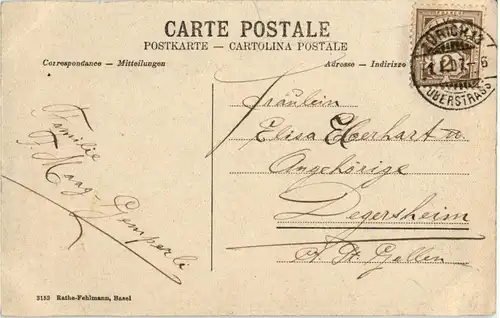 CARTE POSTALE
POSTKARTE - CARTOLINA POSTALE
Correspondance - Mitteilungen
Adresse - Indirizzo
ZÜRICH
OBERSTRASS
Fräulein
Elisa Eberhart u.
Angehörige
Degersheim
Ct. St. Gallen
Familie
F. Haag-Gemperli
3153 Rathe-Fehlmann, Basel